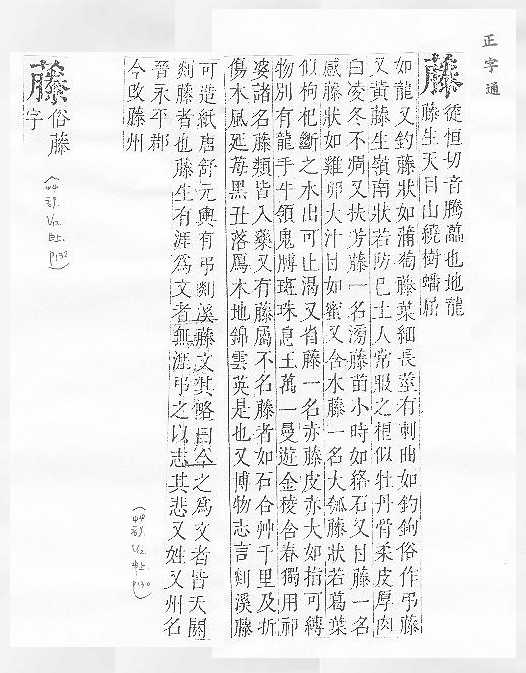 正字通
藤
徒恒切音騰藟也地龍
藤生天目山繞樹蟠屈
如龍又釣藤狀如蒲萄藤葉細長莖有刺曲如釣鉤俗作弔藤
又黃藤生嶺南狀若防巳土人常服之相似牡丹骨柔皮厚肉
白凌冬不凋又扶芳藤一名滂藤苗小時如絡石又甘藤一名
感藤狀如雞卵大汁甘如蜜又含水藤一名大瓠藤狀若葛葉
似枸杞斷之水出可止渴又省藤一名赤藤皮赤大如指可縛
物別有龍手牛領鬼膊斑珠息王萬一曼遊金稜含春獨用祁
婆諸名藤類皆入藥又有藤屬不名藤者如石合艸千里及折
傷木風延苺黑丑落鴈木地錦雲英是也又博物志言剡溪藤
可造紙唐舒元輿有弔剡溪藤文其略曰今之爲文者皆夭閼
剡藤者也藤生有涯爲文者無涯弔之以志其悲又姓又州名
晉永平郡
今改藤州
(艸部 1/12 中上 P130)
藤
俗藤
字
(艸部 1/12 中上 P132)